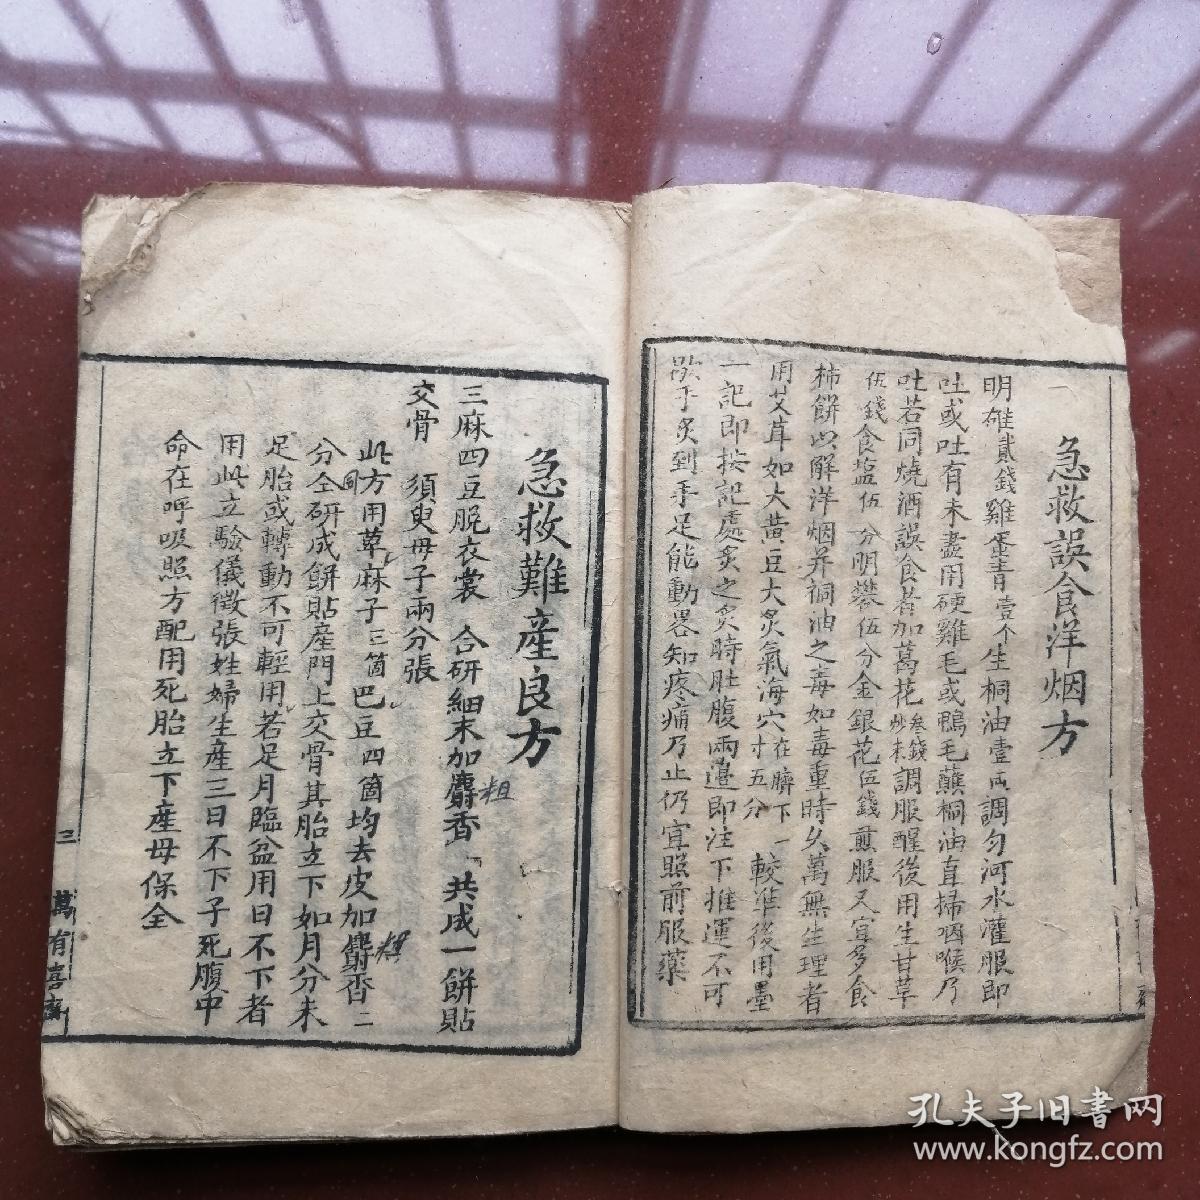 急救誤食洋烟方
明礶貳錢雞蛋青壹个生桐油壹両調勻河水灌服即
吐或吐有未盡用硬雞毛或鴨毛蘸桐油直掃咽喉乃
吐若同燒酒誤食者加萬花叁錢炒末調服醒後用生甘草
伍錢食塩伍分明礬伍分金銀花伍錢煎服又宜多食
柿餅以解洋烟并桐油之毒如毒重時久萬無生理者
用艾茸如大黃豆大炙氣海穴在臍下一寸五分較準後用墨
一記即按記處炙之炙時肚腹兩邉即注下推運不可
歇手炙到手足能動畧知疼痛乃止仍宜照前服藥
急救難產良方
三麻四豆脫衣裳 合研細末加麝香 共成一餅貼
粗
交骨 須臾母子兩分張
此方用草麻子三箇巴豆四箇均去皮加麝香二
粗
分仝研成餅貼產門上交骨其胎立下如月分未
同
足胎或轉動不可輕用若足月臨盆用日不下者
用此立驗儀徵張姓婦生產三日不下子死腹中
命在呼吸照方配用死胎立下產母保全
三
萬有喜齋
孔夫子旧書网
www.kongfz.com